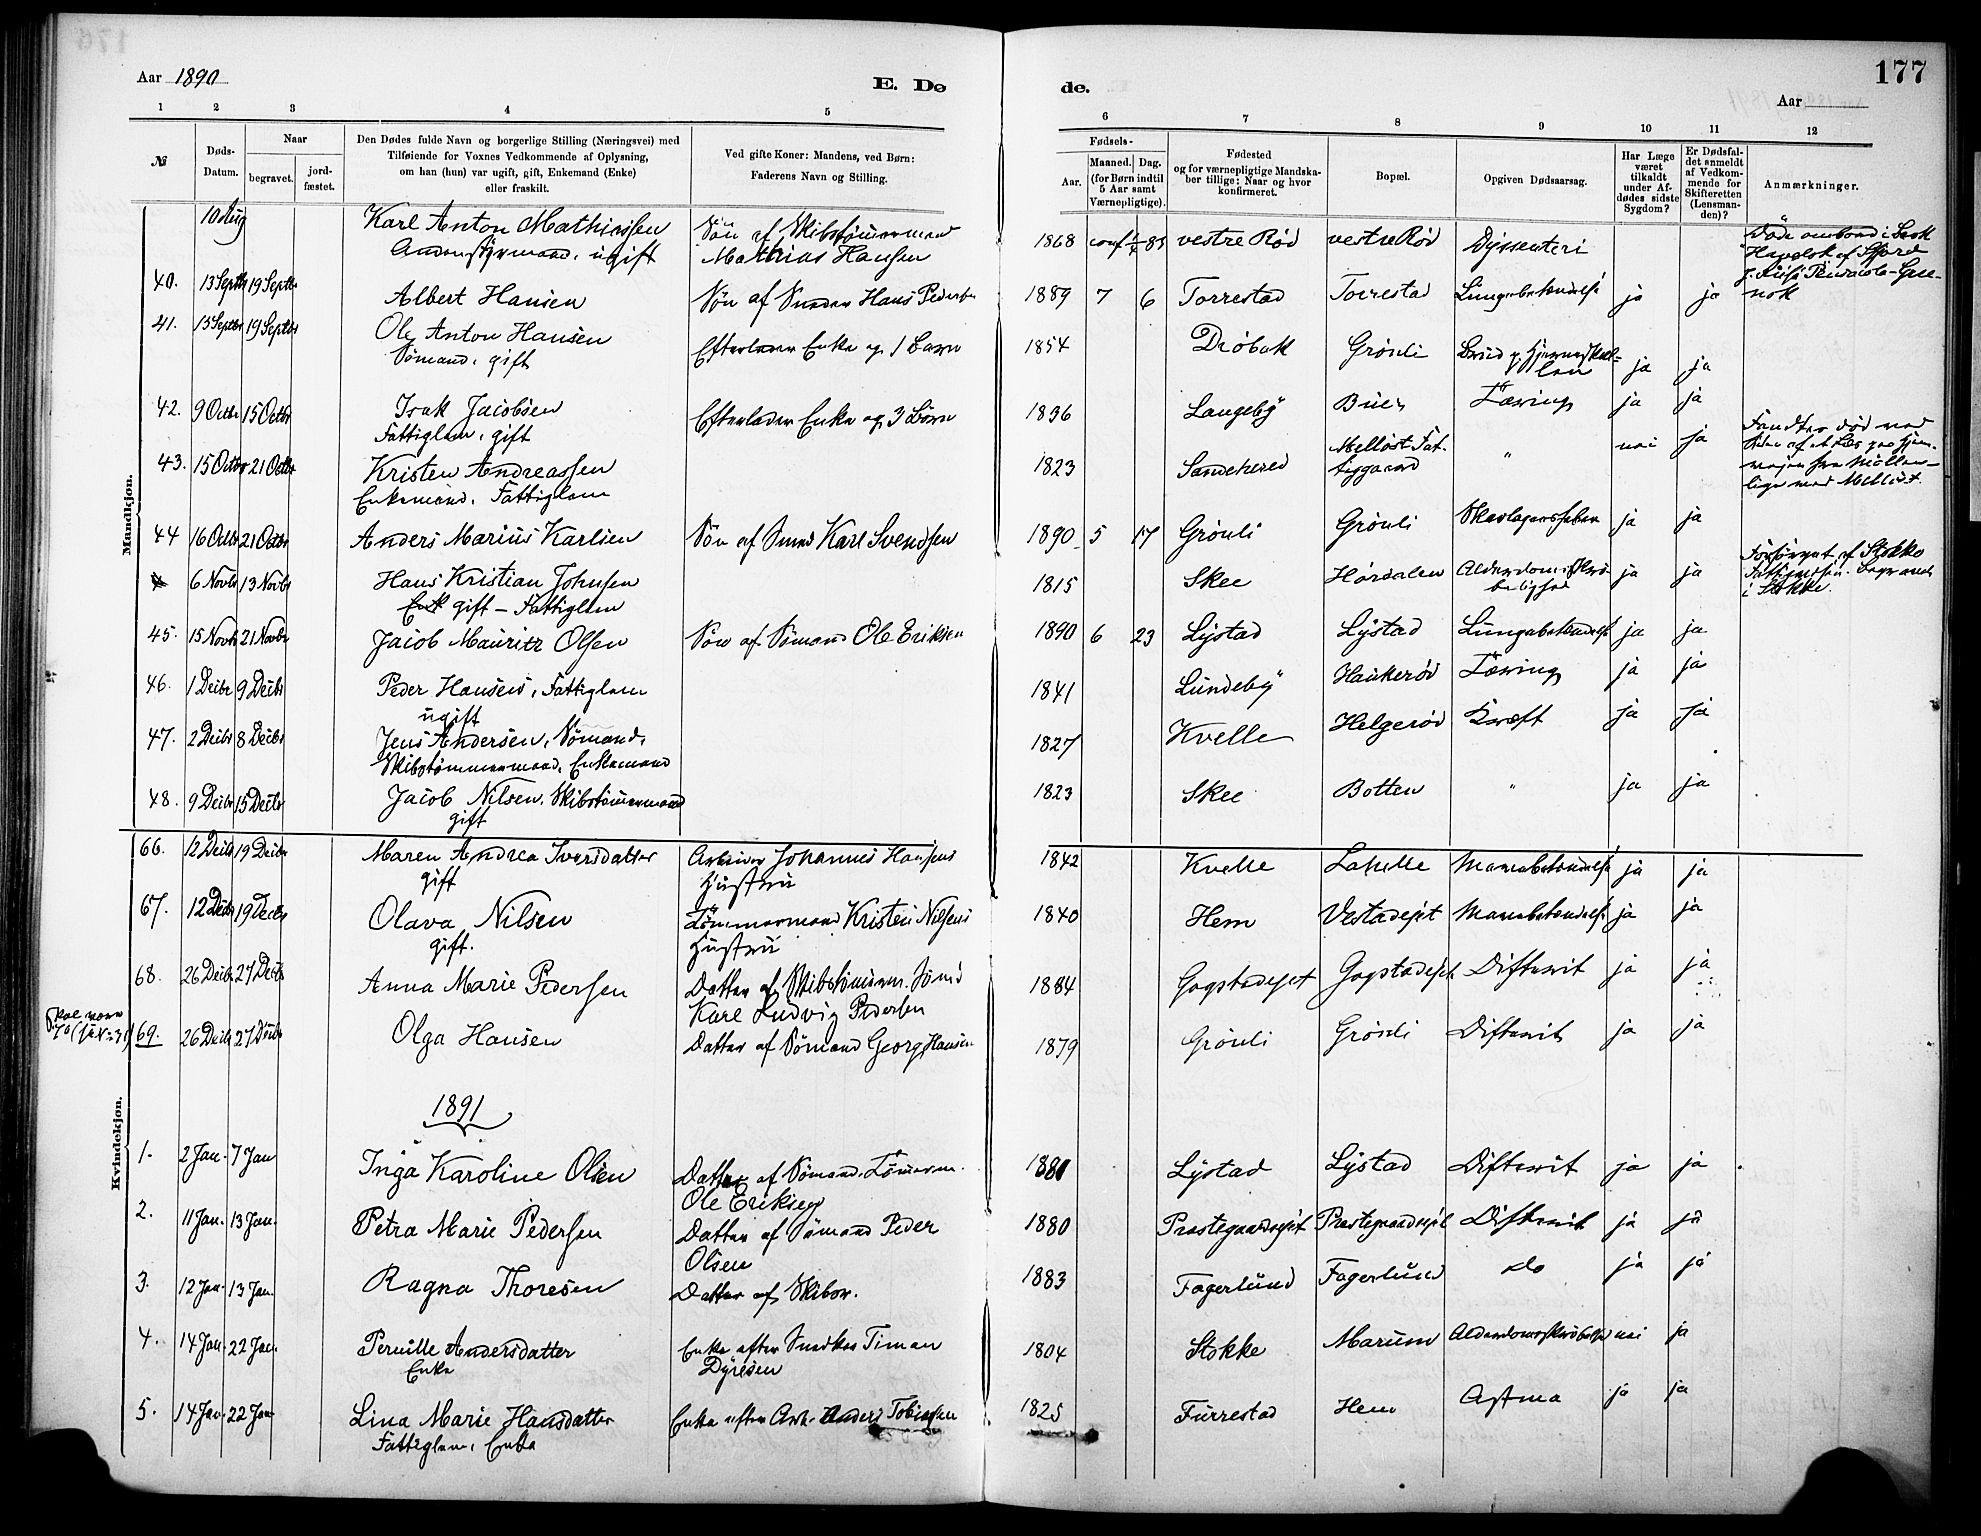 177
Aar 1890
E. Dø
de.
Aar
1 2 3 4 5
6 7 8 9 10 11 12
№
Døds-
Datum.
Naar
begravet.
jord-
fæstet.
Den Dødes fulde Navn og borgerlige Stilling (Næringsvei) med
Tilføiende for Voxnes Vedkommende af Oplysning,
om han (hun) var ugift, gift, Enkemand (Enke)
eller fraskilt.
Ved gifte Koner: Mandens, ved Børn:
Faderens Navn og Stilling.
Fødsels-
Aar.
Maaned. Dag.
(for Børn indtil
5 Aar samt
Værnepligtige).
Fødested
og for værnepligtige Mandska-
ber tillige: Naar og hvor
konfirmeret.
Bopæl.
Opgiven Dødsaarsag.
Har Læge
været
tilkaldt
under Af-
dødes sidste
Sygdom?
Er Dødsfal-
det anmeldt
af Vedkom-
mende for
Skifteretten
(Lensman-
den)?
Anmærkninger.
Mandkjøn.
10 Aug Karl Anton Mathiassen Søn af Skibstømmermand 1868 conf vestre Rød vestre Rød Dyssenteri
Andenstyrmand, ugift Mathias Hansen
Døde ombord i Bark
40. 13 Septbr 19 Septbr Albert Hansen Søn af Smeder Hans Pedersen 1889 7 6 Torrestad Torrestad Lungebetændelse ja ja
41. 13 Septbr 19 Septbr Ole Anton Hansen Efterlader Enke og 1 Barn 1854 Drøbak Grønli Brud p. Hjerneskal- ja ja
Sømand, gift len
42. 9 Octbr 15 Octbr Isak Jacobsen Efterlader Enke og 3 Børn 1836 Langeby Buer Tæring ja ja
Fattiglem, gift
43. 15 Octbr 21 Octbr Kristen Andreassen 1823 Sandeherred Melløst Fat- " nei ja
Enkemand. Fattiglem tiggaard
Fandtes død ved
44 16 Octbr 21 Octbr Anders Marius Karlsen Søn af Smed Karl Svendsen 1890 5 17 Grønli Grønli Skarlagensfeber ja ja
6 Novbr 13 Novbr Hans Kristian Johnsen 1815 Skee Hørdalen Alderdomsskrø- ja ja
gift - Fattiglem belighed
Forsørget af Stokke
Fattigvæsen. Begravet
i Stokke.
45. 15 Novbr 21 Novbr Jacob Mauritz Olsen Søn af Sømand Ole Eriksen 1890 6 23 Lystad Lystad Lungebetændelse ja ja
46. 1 Decbr 9 Decbr Peder Hansen, Fattiglem 1841 Lundeby Haukerød Tæring ja ja
ugift
47. 2 Decbr 8 Decbr Jens Andersen, Sømand, 1827 Kvelle Helgerød Kræft ja ja
Skibstømmermand, Enkemand
48. 9 Decbr 15 Decbr Jacob Nilsen, Skibstømmermand 1823 Skee Botten " ja ja
gift
Kvindekjøn.
66. 12 Decbr 19 Decbr Maren Andrea Iversdatter Arbeider Johannes Hansens 1842 Kvelle Lahelle Mavebetændelse ja ja
gift Hustru
67. 12 Decbr 19 Decbr Olava Nilsen Tømmermand Kristen Nilsens 1840 Hem Vestadejet Mavebetændelse ja ja
gift. Hustru
68. 26 Decbr 27 Decbr Anna Marie Pedersen Datter af Skibstømmerm. Sømd 1884 Gogstadejet Gogstadejet Difterit ja ja
Karl Ludvig Pedersen
Skal være
69. 26 Decbr 27 Decbr Olga Hansen Datter af Sømand Georg Hansen 1879 Grønli Grønli Difterit ja ja
1891
1. 2 Jan. 7 Jan Inga Karoline Olsen Datter af Sømand. Tømmerm. 1881 Lystad Lystad Difterit ja ja
Ole Eriksen
2. 11 Jan. 13 Jan. Petra Marie Pedersen Datter af Sømand Peder 1880 Prestegaardsejet Prestegaardsejet Difterit ja ja
Olsen
3. 12 Jan. 13 Jan. Ragna Thoresen Datter af Skibsr. 1883 Fagerlund Fagerlund do ja ja
4. 14 Jan 22 Jan. Pernille Andersdatter Enke efter Snedker Timan 1804 Stokke Marum Alderdomsskrøbelighed nei ja
Enke Dyresen
5. 14 Jan. 22 Jan Lina Marie Hansdatter Enke efter Arb. Anders Tobiassen 1825 Furrestad Hem Astma ja ja
Fattiglem, Enke